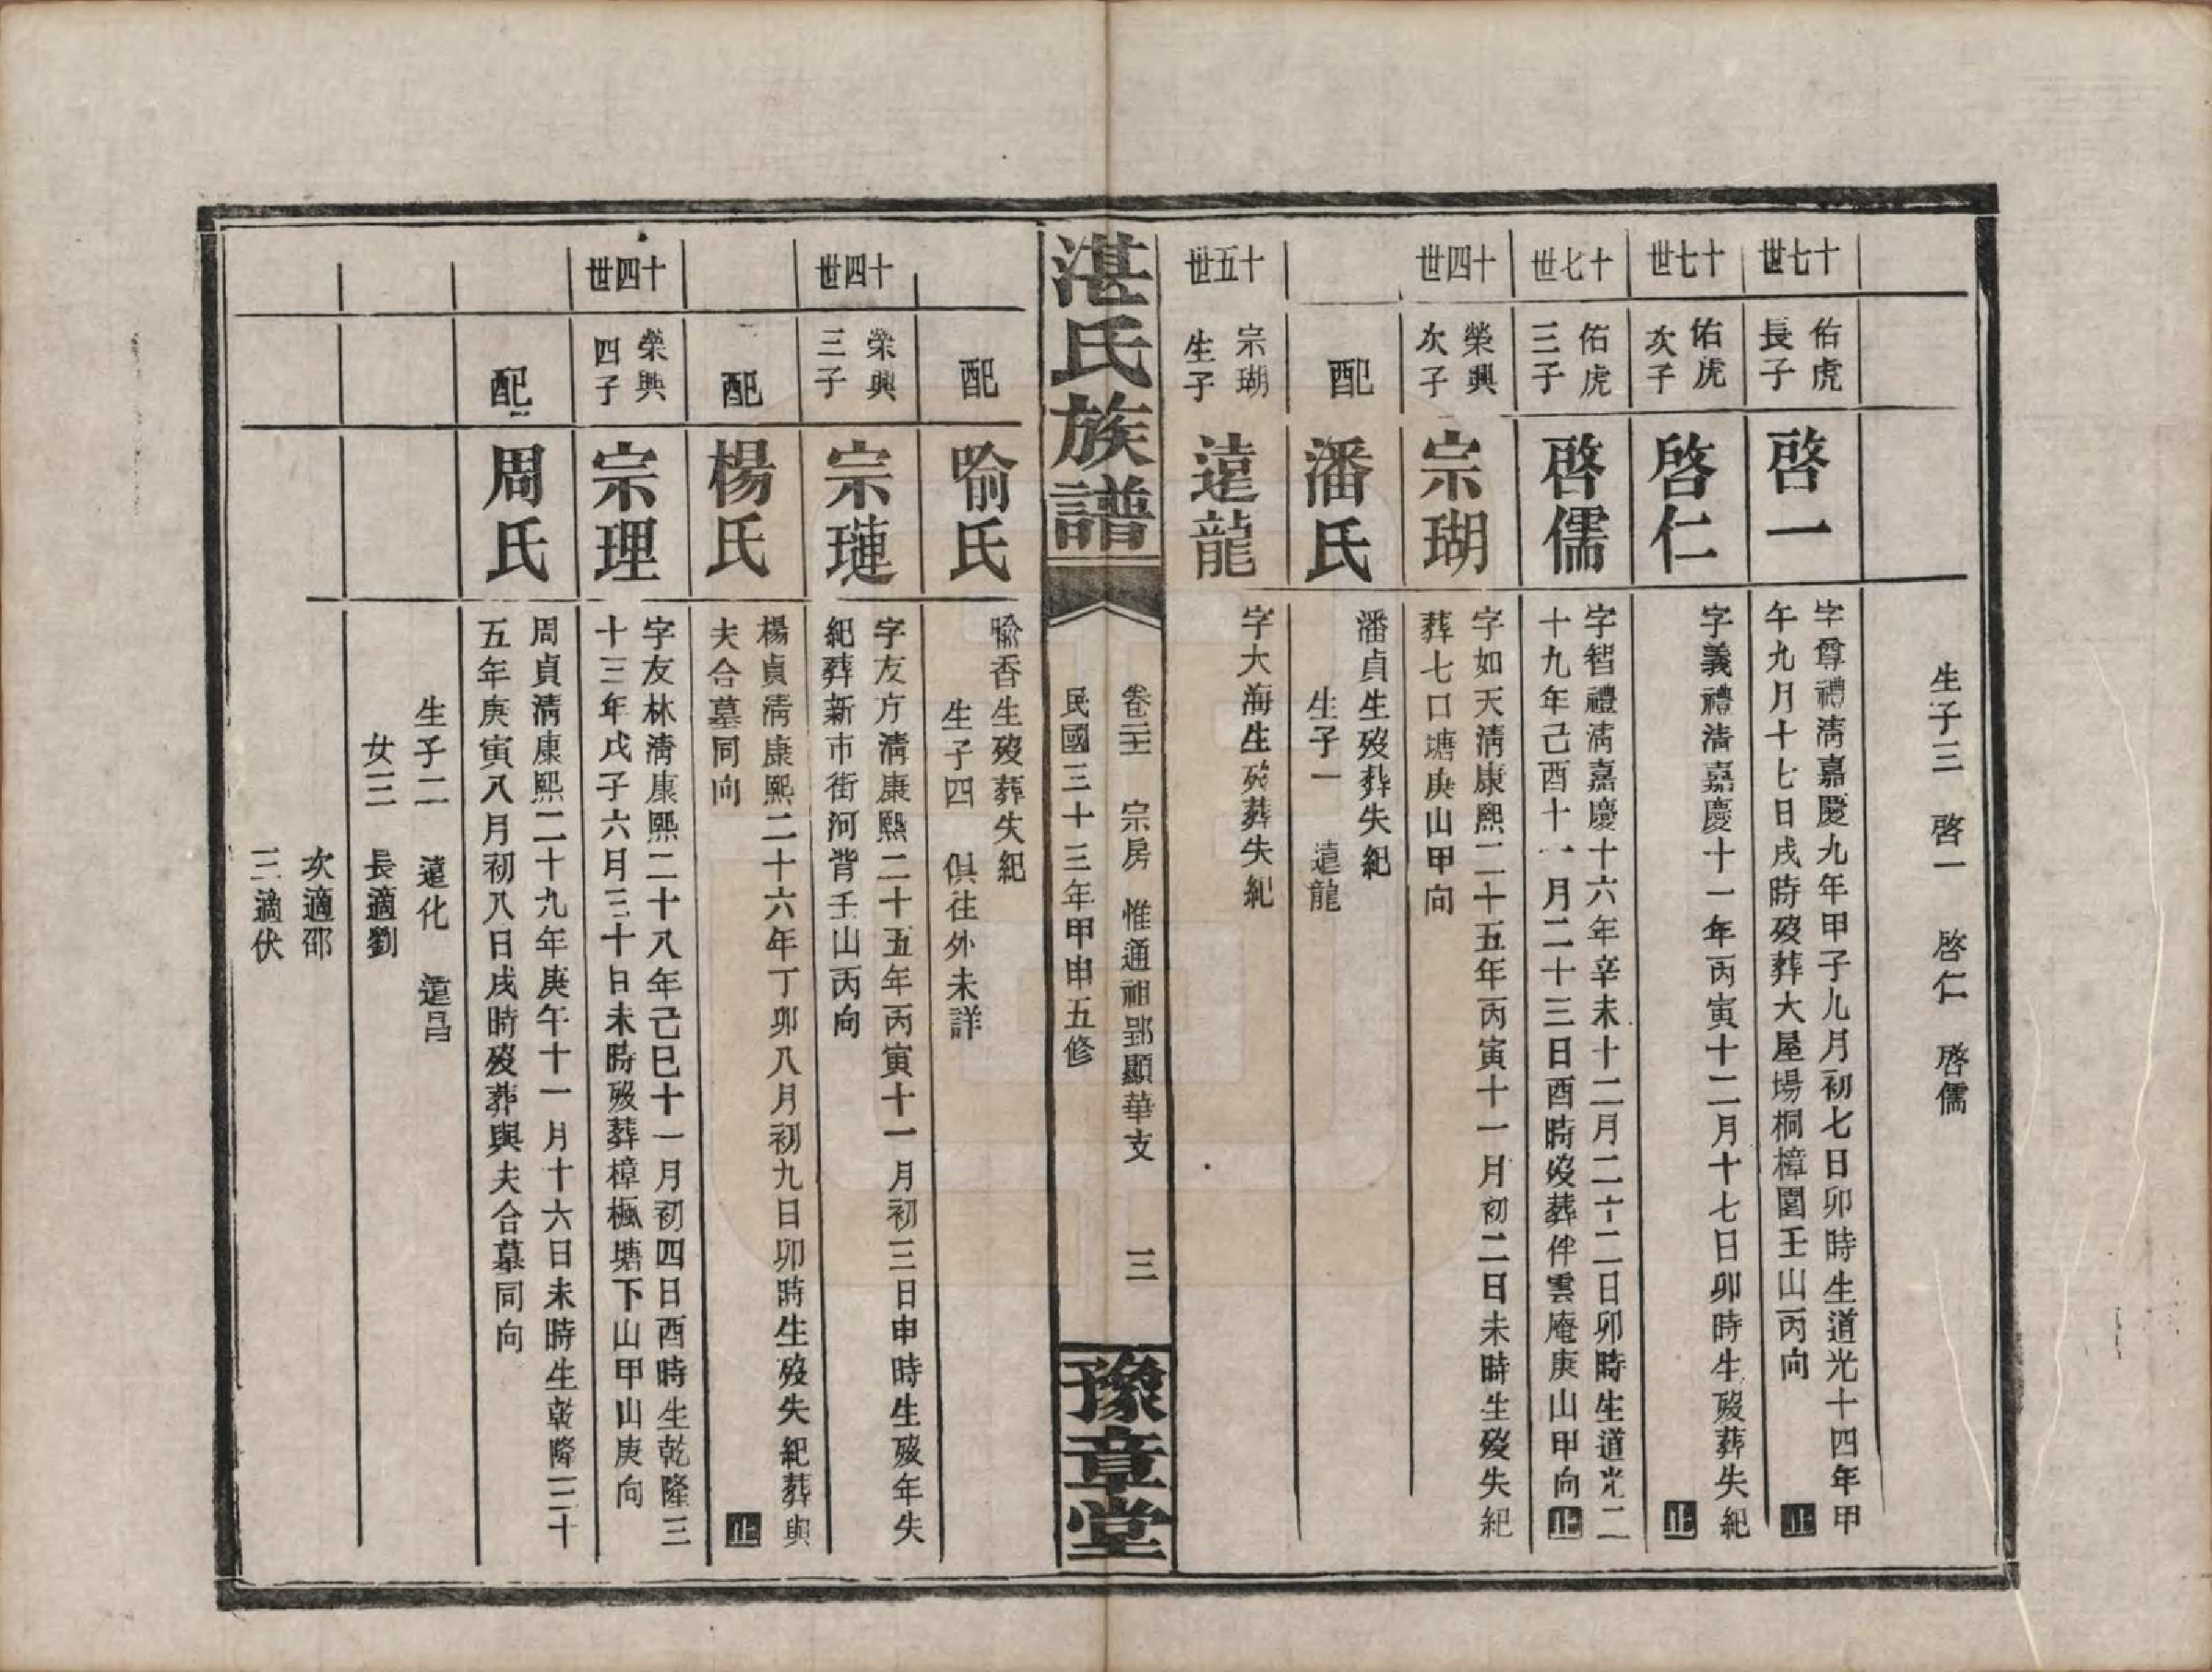 生子三 啓一 啓仁 啓儒
十七世
佑虎
長子
啓一
字尊禮清嘉慶九年甲子九月初七日卯時生道光十四年甲
午九月十七日戌時歿葬大屋場桐樟園壬山丙向 止
十七世
佑虎
次子
啓仁
字義禮清嘉慶十一年丙寅十二月十七日卯時生歿葬失紀
止
十七世
佑虎
三子
啓儒
字智禮清嘉慶十六年辛未十二月二十二日卯時生道光二
十九年己酉十一月二十三日酉時歿葬伴雲庵庚山甲向 止
十四世
榮興
次子
宗瑚
字如天清康熙二十五年丙寅十一月初二日未時生歿失紀
葬七口塘庚山甲向
配
潘氏
潘貞生歿葬失紀
生子一 遠龍
十五世
宗瑚
生子
遠龍
字大海生歿葬失紀
湛氏族譜
卷三 宗房 惟通祖郢顯華支 三
民國三十三年甲申五修
豫章堂
配
喻氏
喻香生歿葬失紀
生子四 俱往外未詳
十四世
榮興
三子
宗璉
字友方清康熙二十五年丙寅十一月初三日申時生歿年失
紀葬新市街河背壬山丙向
配
楊氏
楊貞清康熙二十六年丁卯八月初九日卯時生歿失紀葬與
夫合墓同向 止
十四世
榮興
四子
宗理
字友林清康熙二十八年己巳十一月初四日酉時生乾隆三
十三年戊子六月三十日未時歿葬樟楓塘下山甲山庚向
配
周氏
周貞清康熙二十九年庚午十一月十六日未時生乾隆三十
五年庚寅八月初八日戌時歿葬與夫合墓同向
生子二 遠化 遠昌
女三 長適劉
次適邵
三適伏